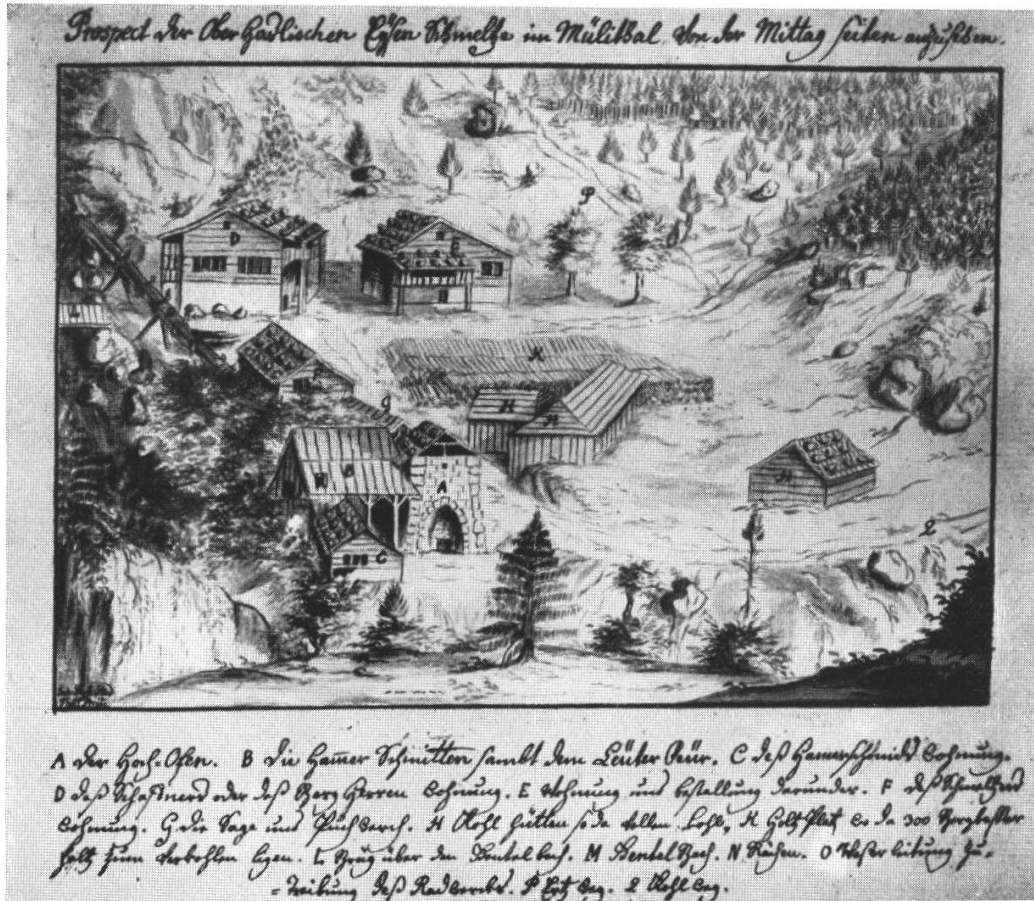 Prospect der Ober Haslischen Eÿsen Schmeltze im Mülithal von der Mittag seiten anzusehen.
P
D
E
L
F
K
g
H
H
B
A
H
C
Q
A der Hoch-Ofen. B die Ham̄er Schmitten sambt dem Leüter Feür. C deß Hamerschmids Wohnung.
D deß Schaffners oder deß Berg Herren Wohnung. E Wohnung und bestallung darunder. F deß Schmeltzers
Wohnung. G die Sage und Puchwerch. H Kohl hütten so da K Holtz Platz wo da 300
holtz zum Verkohlen ligen. L Brüg über den Gentel bach. M Gentel Bach. N O Waßer leitung zu=
=treibung deß Radwercks. P Ertz weg. Q Kohl weg.